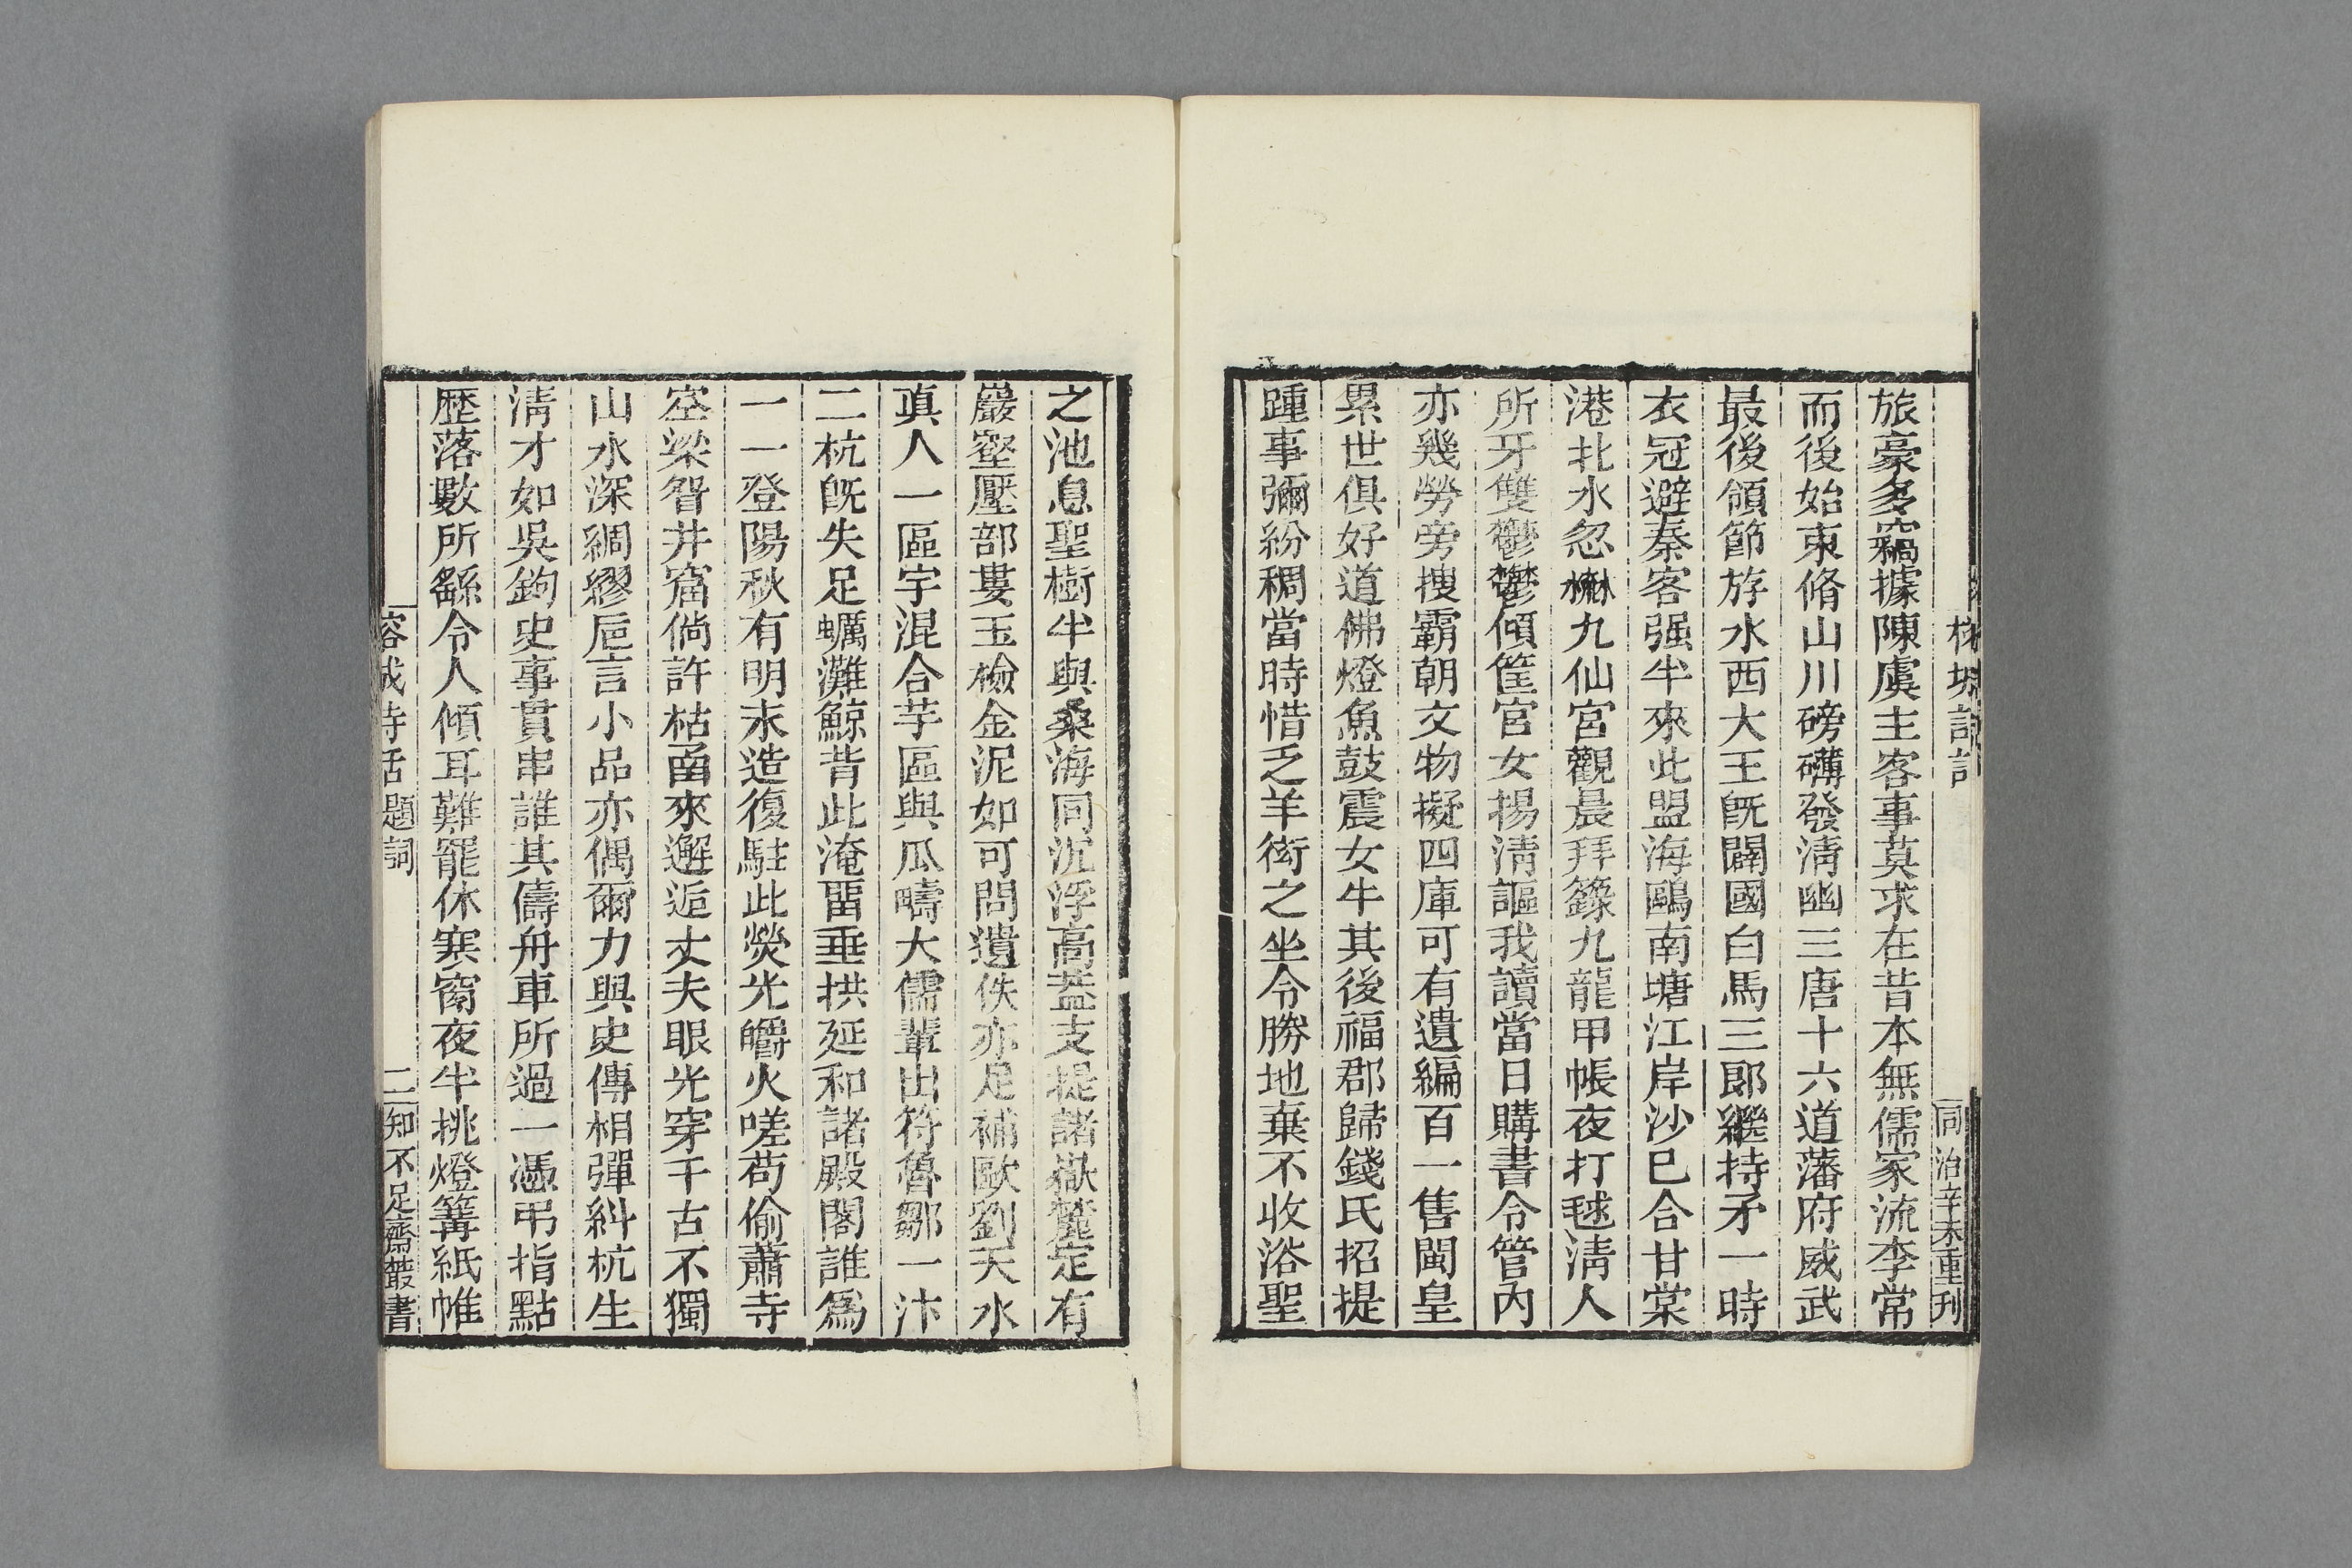 同治辛未重刊
旅豪多竊據陳虞主客事莫求在昔本無儒家流李常
而後始東脩山川磅礴發清幽三唐十六道藩府威武
最後領節斿水西大王旣闢國白馬三郞繼持矛一時
衣冠避秦客强半來此盟海鷗南塘江岸沙巳合甘棠
港北水忽㵽九仙宮觀晨拜籙九龍甲帳夜打毬淸人
所牙雙鬱鬱傾筐宮女揚淸謳我讀當日購書令管內
亦幾勞旁搜霸朝文物擬四庫可有遺編百一售閩皇
累世俱好道佛燈魚鼓震女牛其後福郡歸錢氏招提
踵事彌紛稠當時惜乏羊衒之坐令勝地棄不收浴聖
之池息聖樹半與桑海同沉浮高蓋支提諸嶽麓定有
巖壑壓部婁玉檢金泥如可問遺佚亦足補歐劉天水
眞人一區宇混合芋區與瓜疇大儒輩出符魯鄒一汴
二杭旣失足蠣灘鯨背此淹畱垂拱延和諸殿閣誰爲
一一登陽秋有明末造復駐此熒光爝火嗟苟偷蕭寺
空梁眢井窟倘許枯𠧧來邂逅丈夫眼光穿千古不獨
山水深綢繆卮言小品亦偶爾力與史傳相彈糾杭生
淸才如吳鉤史事貫串誰其儔舟車所過一憑弔指點
歷落數所繇令人傾耳難罷休寒窗夜半挑燈篝紙帷
榕城詩話題詞
二
知不足齋叢書